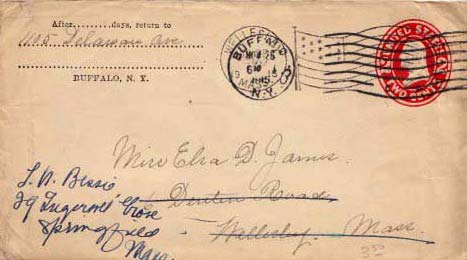 After........days, return to
1105 Delaware Ave
BUFFALO, N. Y.
BUFFALO
N.Y.
UNITED STATES
TWO CENTS
Miss Elsa D. James.
6 Denton Road
Wellesley. Mass.
29 Ingersoll Grove
Springfield
Mass.
3.50